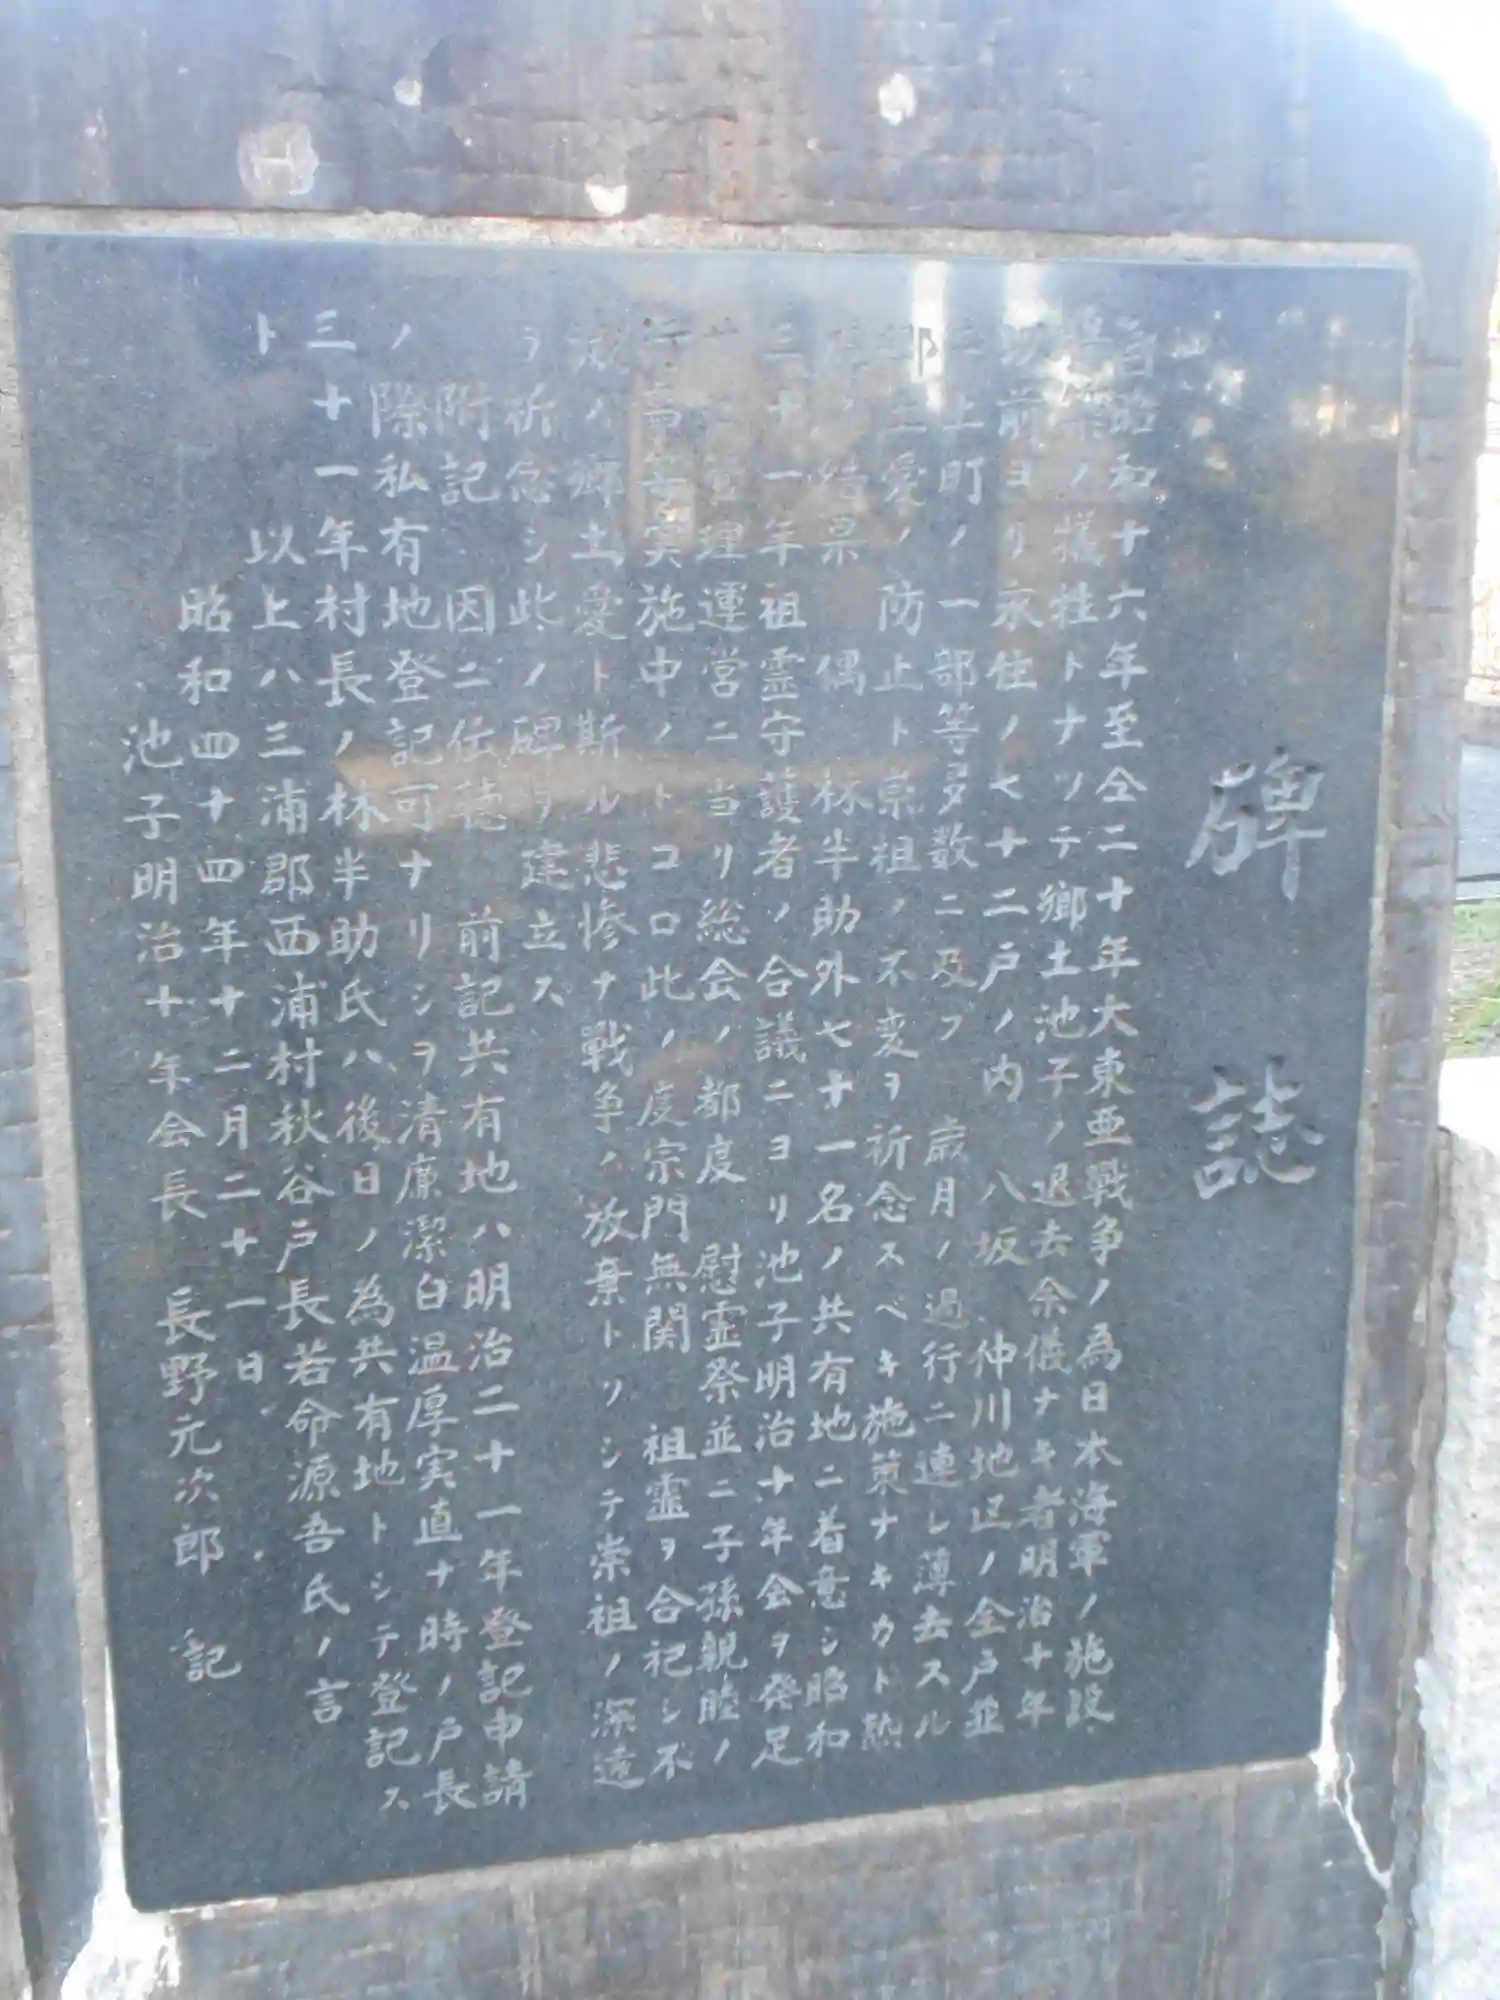 碑誌
自昭和十六年至仝二十年大東亜戦争ノ為日本海軍ノ施設
ノ犠牲トナツテ郷土池子ノ退去余儀ナキ者明治十年
以前ヨリ永住ノ七十二戸ノ内 八坂 仲川地区ノ全戸並
ニ上町ノ一部等多数ニ及ブ 歳月ノ過行ニ連レ薄去スル
土愛ノ防止ト崇祖ノ不変ヲ祈念スベキ施策ナキカト熱
結果 偶 林半助外七十一名ノ共有地ニ着意シ昭和
三十一年祖霊守護者ノ合議ニヨリ池子明治十年会ヲ発足
管理運営ニ当リ総会ノ都度 慰霊祭並ニ子孫親睦ノ
行事等実施中ノトコロ此ノ度宗門無関 祖霊ヲ合祀シ不
滅ノ郷土愛ト斯ル悲惨ナ戦争ノ放棄トリシテ崇祖ノ深遠
ヲ祈念シ此ノ碑ヲ建立ス
附記 因ニ伝聴 前記共有地ハ明治二十一年登記申請
ノ際私有地登記可ナリシヲ清廉潔白温厚実直ナ時ノ戸長
三十一年村長ノ林半助氏ハ後日ノ為共有地トシテ登記ス
ト 以上ハ三浦郡西浦村秋谷戸長若命源吾氏ノ言
昭和四十四年十二月二十一日
池子明治十年会長 長野元次郎 記